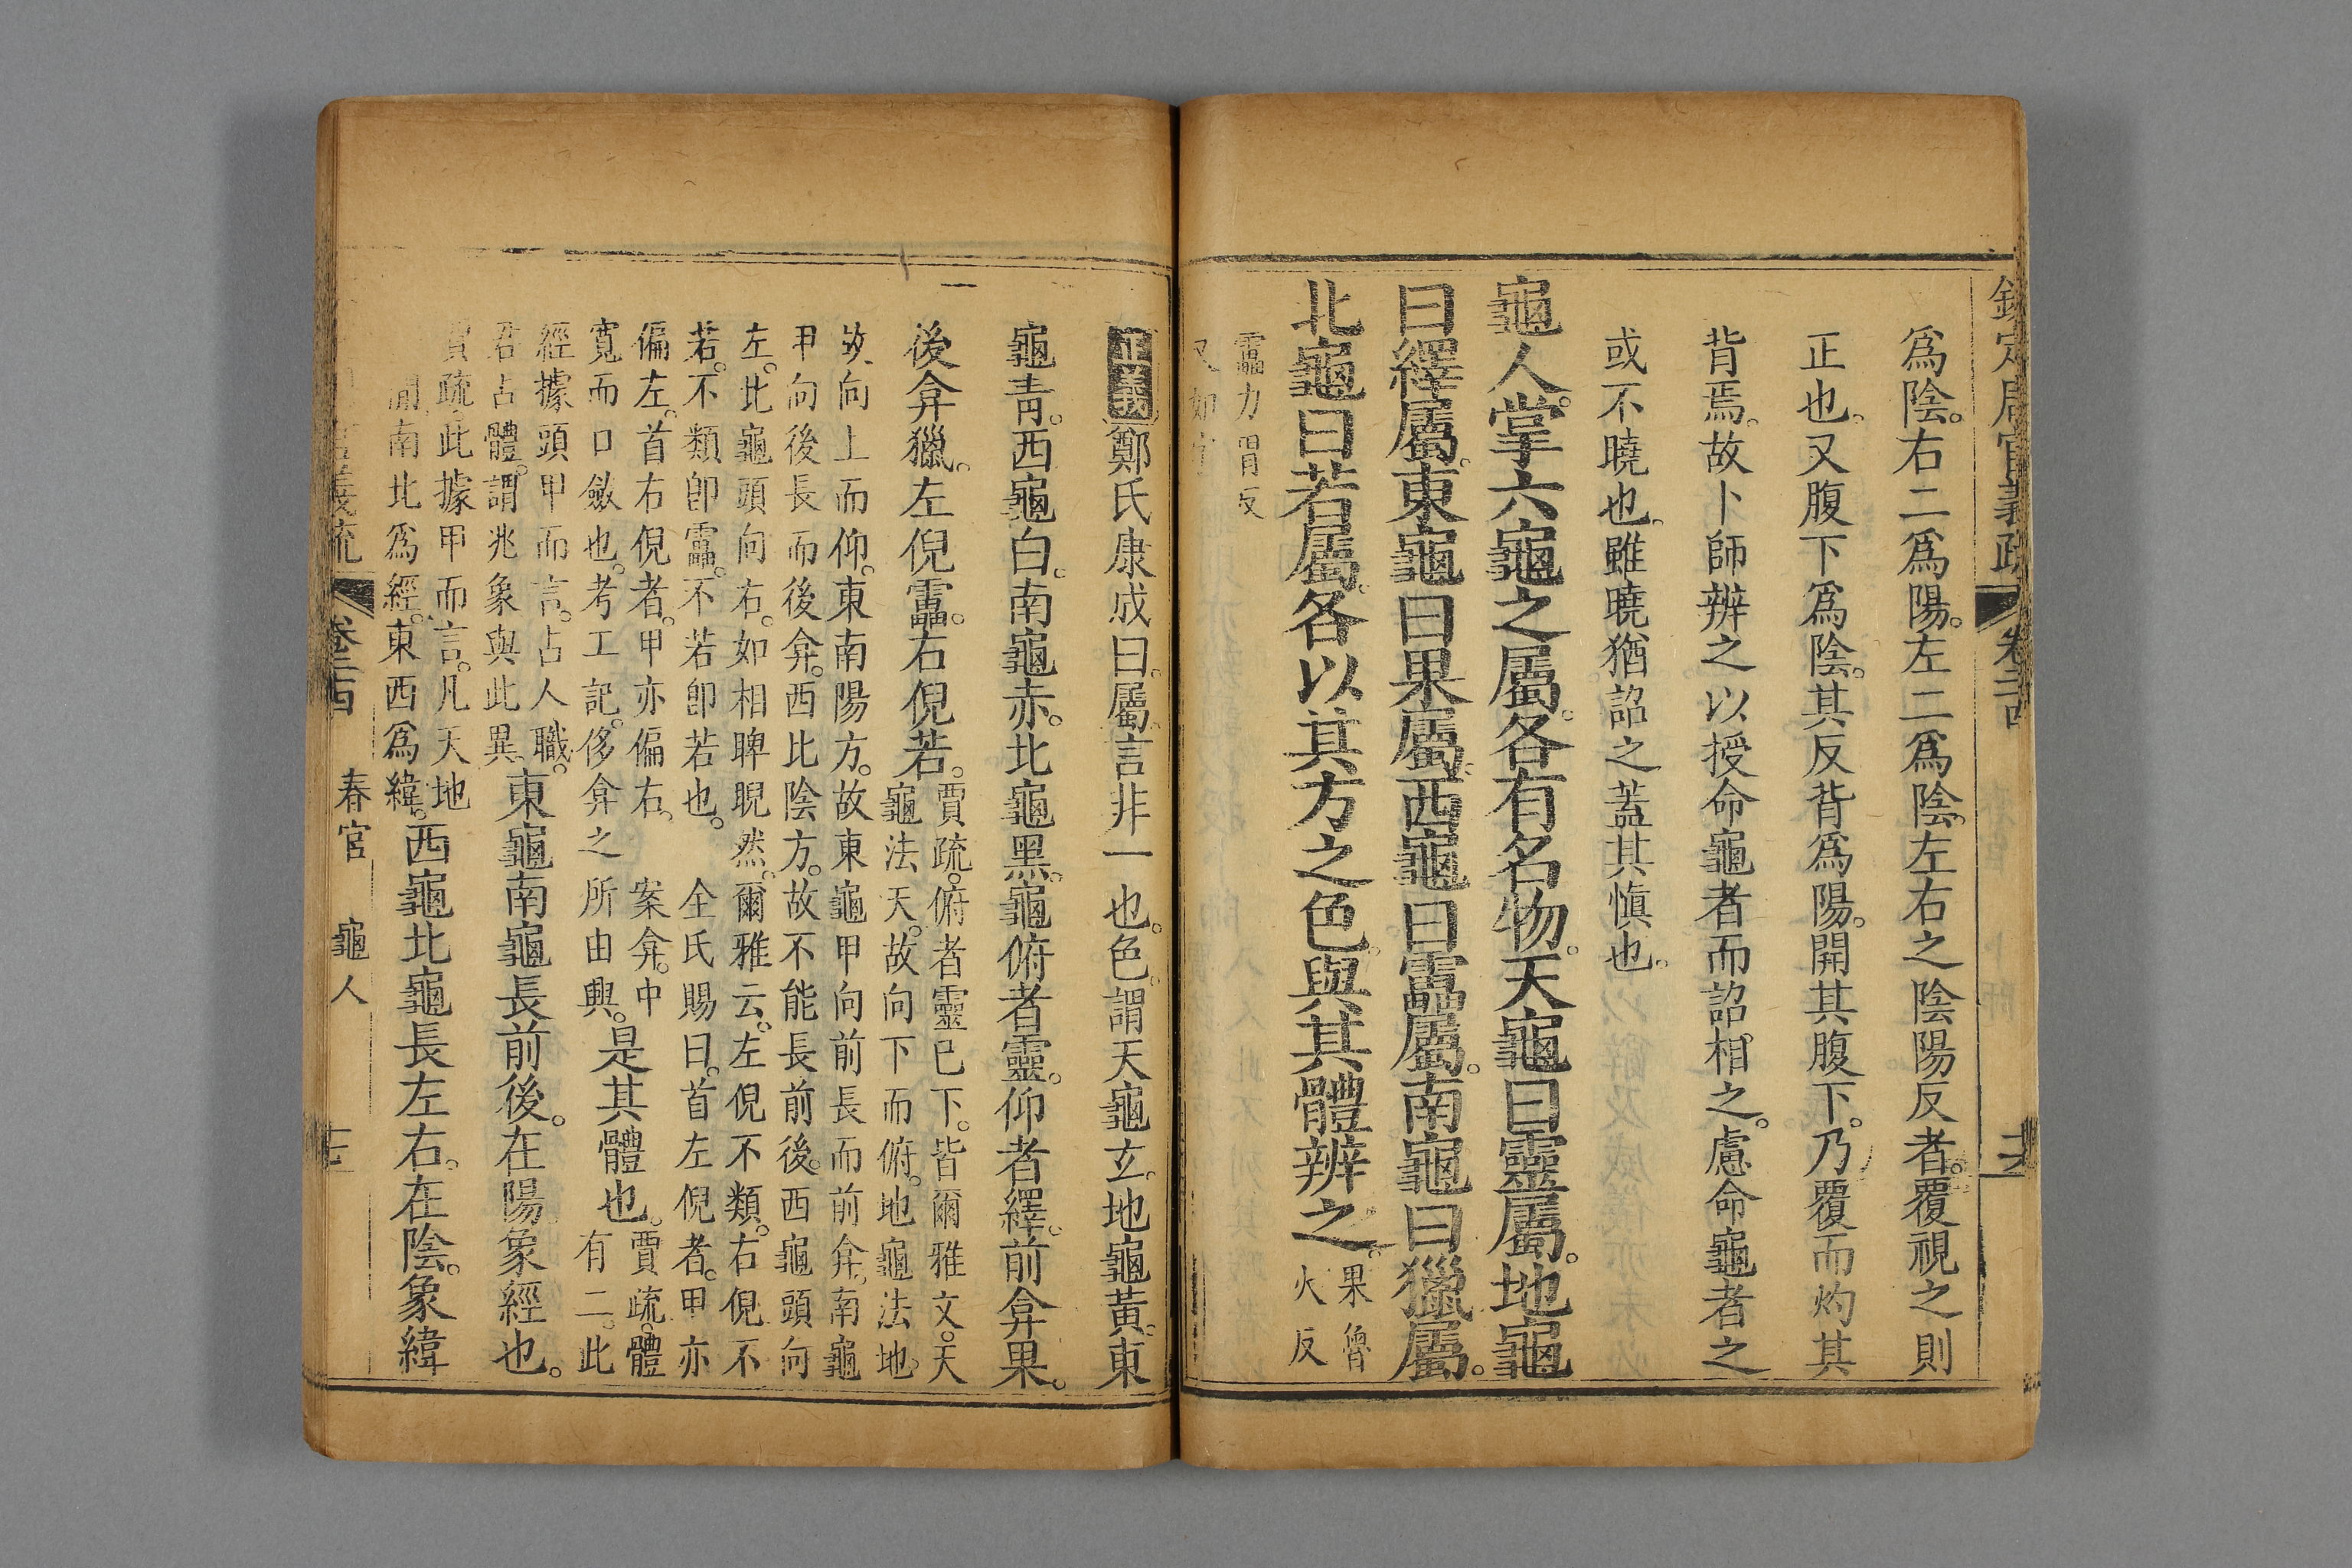 欽定周官義疏 卷二十四
爲陰。右二爲陽。左二爲陰。左右之陰陽反者。覆視之則
正也。又腹下爲陰。其反背爲陽。開其腹下。乃覆而灼其
背焉。故卜師辨之以授命龜者而詔相之。慮命龜者之
或不曉也。雖曉猶詔之蓋其愼也。
龜人。掌六龜之屬。各有名物。天龜曰靈屬。地龜
曰繹屬。東龜曰果屬。西龜曰靁屬。南龜曰獵屬。
北龜曰若屬。各以其方之色。與其體辨之。果魯
火反
靁力胃反
又如字
正義鄭氏康成曰。屬言非一也。色。謂天龜玄。地龜黃。東
龜靑。西龜白。南龜赤。北龜黑。龜俯者靈。仰者繹。前弇果。
後弇獵。左倪靁。右倪若。賈疏。俯者靈已下。皆爾雅文。天
龜法天。故向下而俯。地龜法地。
故向上而仰。東南陽方。故東龜甲向前長而前弇。南龜
甲向後長而後弇。西北陰方。故不能長前後。西龜頭向
左。北龜頭向右。如相睥睨然。爾雅云。左倪不類。右倪不
若。不類卽靁。不若卽若也。 全氏賜曰。首左倪者。甲亦
偏左。首右倪者。甲亦偏右。 案弇。中
寬而口斂也。考工記。侈弇之所由興。是其體也。賈疏。體
有二。此
經據頭甲而言。占人職。
君占體。謂兆象與此異。東龜南龜長前後。在陽。象經也。
賈疏。此據甲而言。凡天地
間南北爲經。東西爲緯。西龜北龜長左右。在陰。象緯
官義疏 卷二十四 春官 龜人